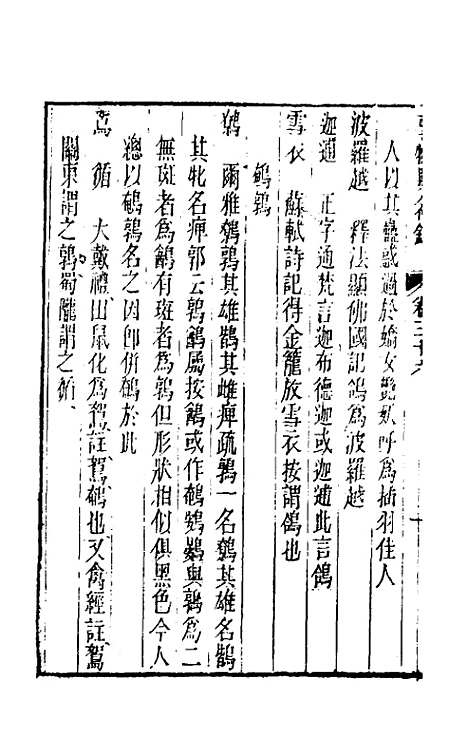 事物異名錄 卷三十六
人以其蠱惑過於嬌女艷妖呼爲插羽佳人
波羅越 釋法顯佛國記鴿爲波羅越
迦逋 正字通梵言迦布德迦或迦逋此言鴿
雪衣 蘇軾詩記得金籠放雪衣按謂鴿也
鵪鶉
鷯 爾雅鷯鶉其雄鶛其雌痺疏鶉一名鷯其雄名鶛
其牝名痺郭云鶉鷂屬按鷂或作鵪鴳鷃與鶉爲二
無斑者爲鷂有斑者爲鶉但形狀相似俱黑色今人
總以鵪鶉名之因卽併鵪於此
鴽 循 大戴禮田鼠化爲鴽註鴽鵪也又禽經註鴽
關東謂之鶉蜀隴謂之循